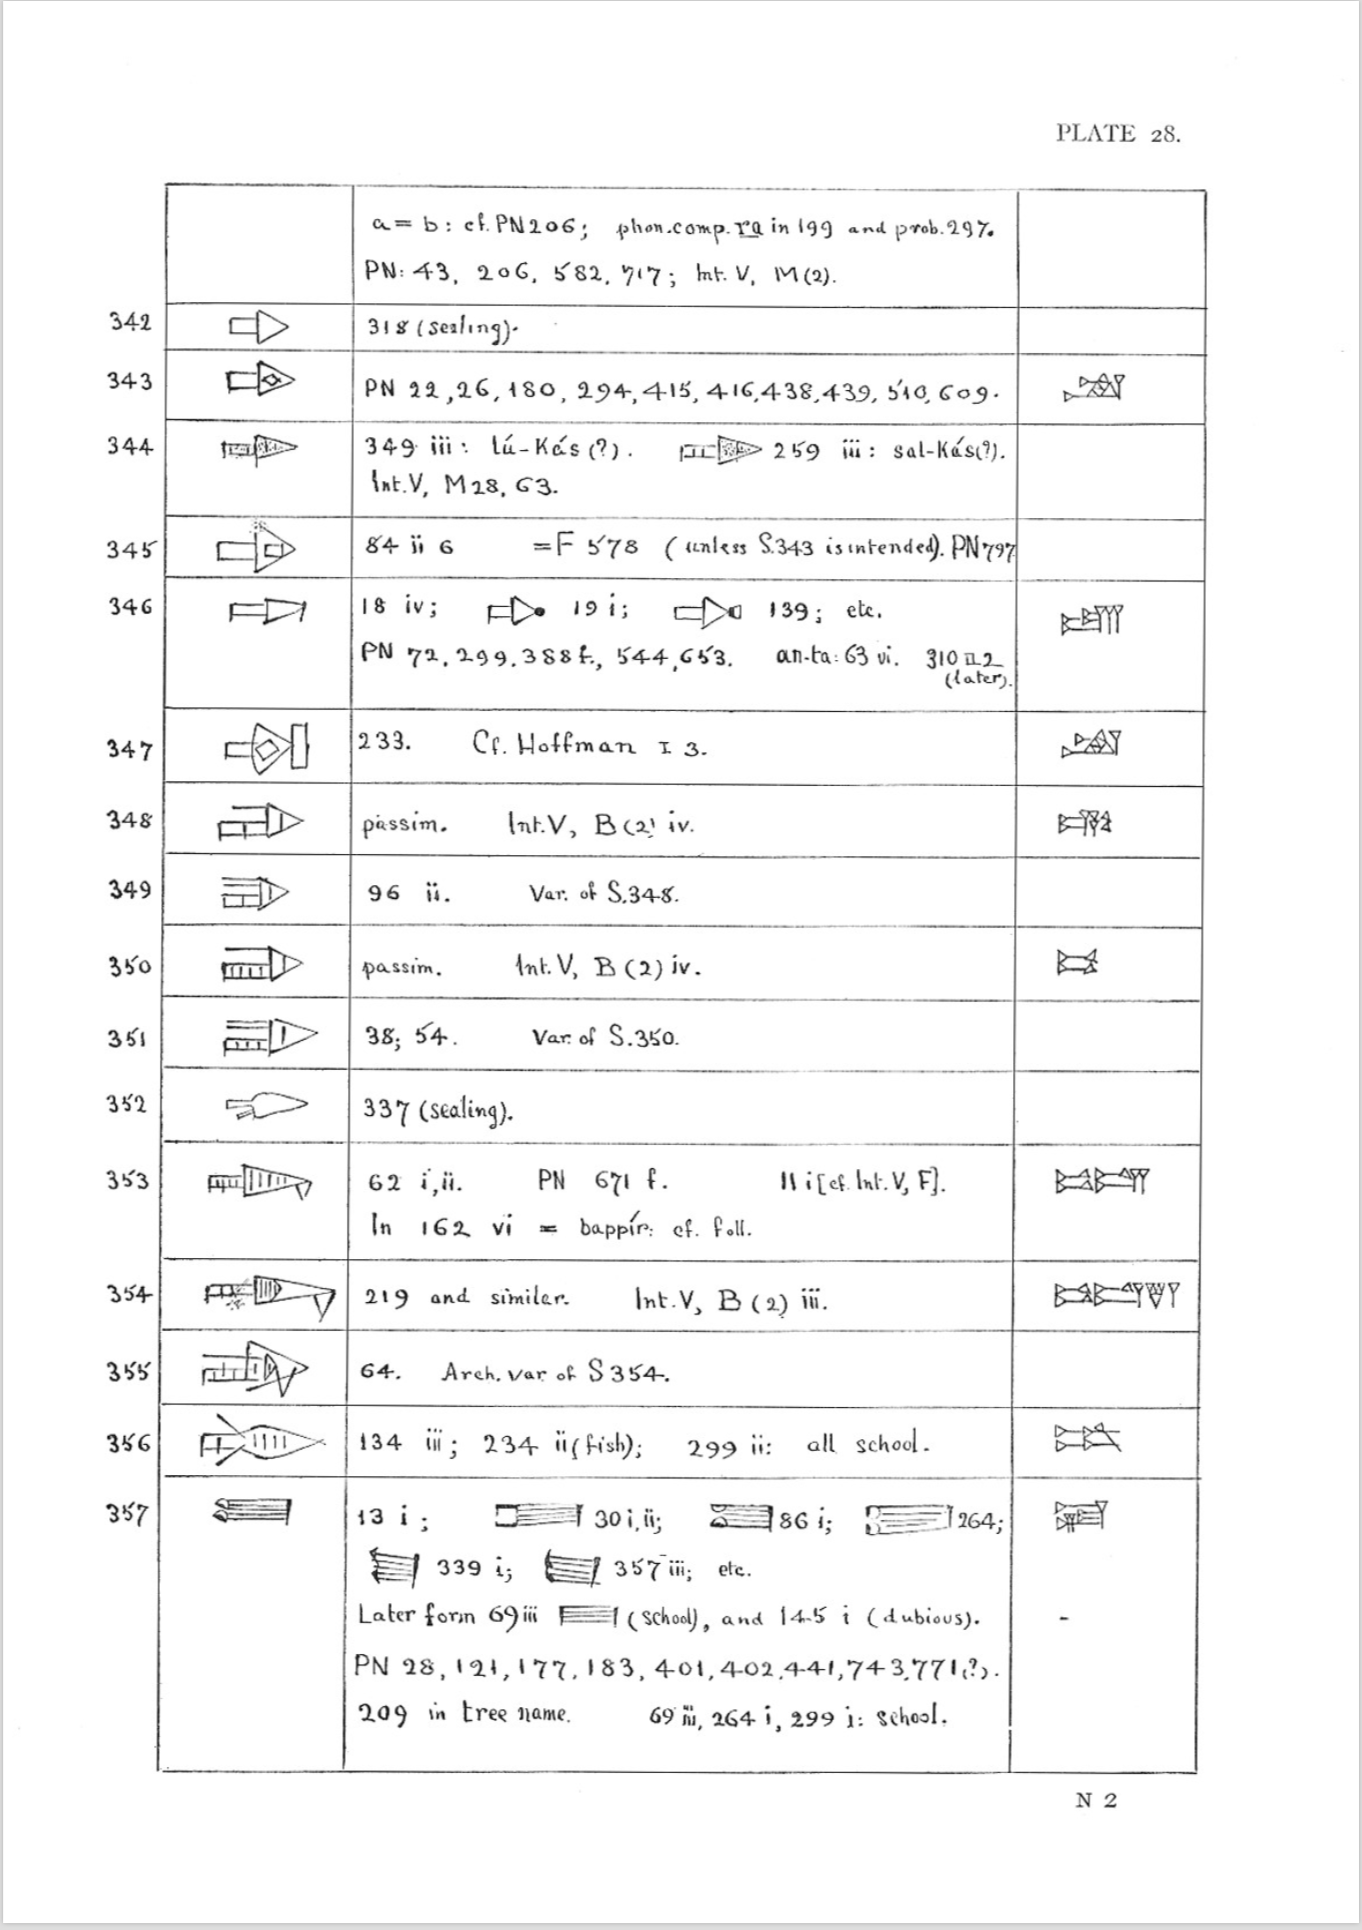 PLATE 28.
a = b : cf. PN 206; phon. comp. ra in 199 and prob. 297.
PN: 43, 206, 582, 717; Int. V, M (2).
342 318 (sealing).
343 PN 22, 26, 180, 294, 415, 416, 438, 439, 510, 609.
344 349 iii: lú-Kás (?). 259 iii: sal-Kás (?).
Int. V, M 28, 63.
345 84 ii 6 = F 578 (unless S. 343 is intended). PN 797
346 18 iv; 19 i; 139; etc.
PN 72, 299, 388 f., 544, 653. an-ta: 63 vi. 310 ii 2
(later).
347 233. Cf. Hoffman I 3.
348 passim. Int. V, B (2) iv.
349 96 ii. Var. of S. 348.
350 passim. Int. V, B (2) iv.
351 38; 54. Var. of S. 350.
352 337 (sealing).
353 62 i, ii. PN 671 f. 11 i [cf. Int. V, F].
In 162 vi = bappír: cf. foll.
354 219 and similar. Int. V, B (2) iii.
355 64. Arch. var. of S 354.
356 134 iii; 234 ii (fish); 299 ii: all school.
357 13 i; 30 i, ii; 86 i; 264;
339 i; 357 iii; etc.
Later form 69 iii (school), and 145 i (dubious). -
PN 28, 121, 177, 183, 401, 402, 441, 743, 771 (?).
209 in tree name. 69 iii, 264 i, 299 i: school.
N 2